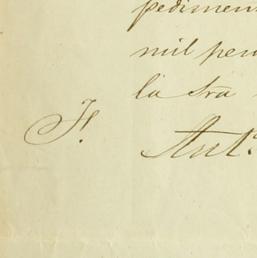 pedimen
mil pen
la Sra
F. Ant.º